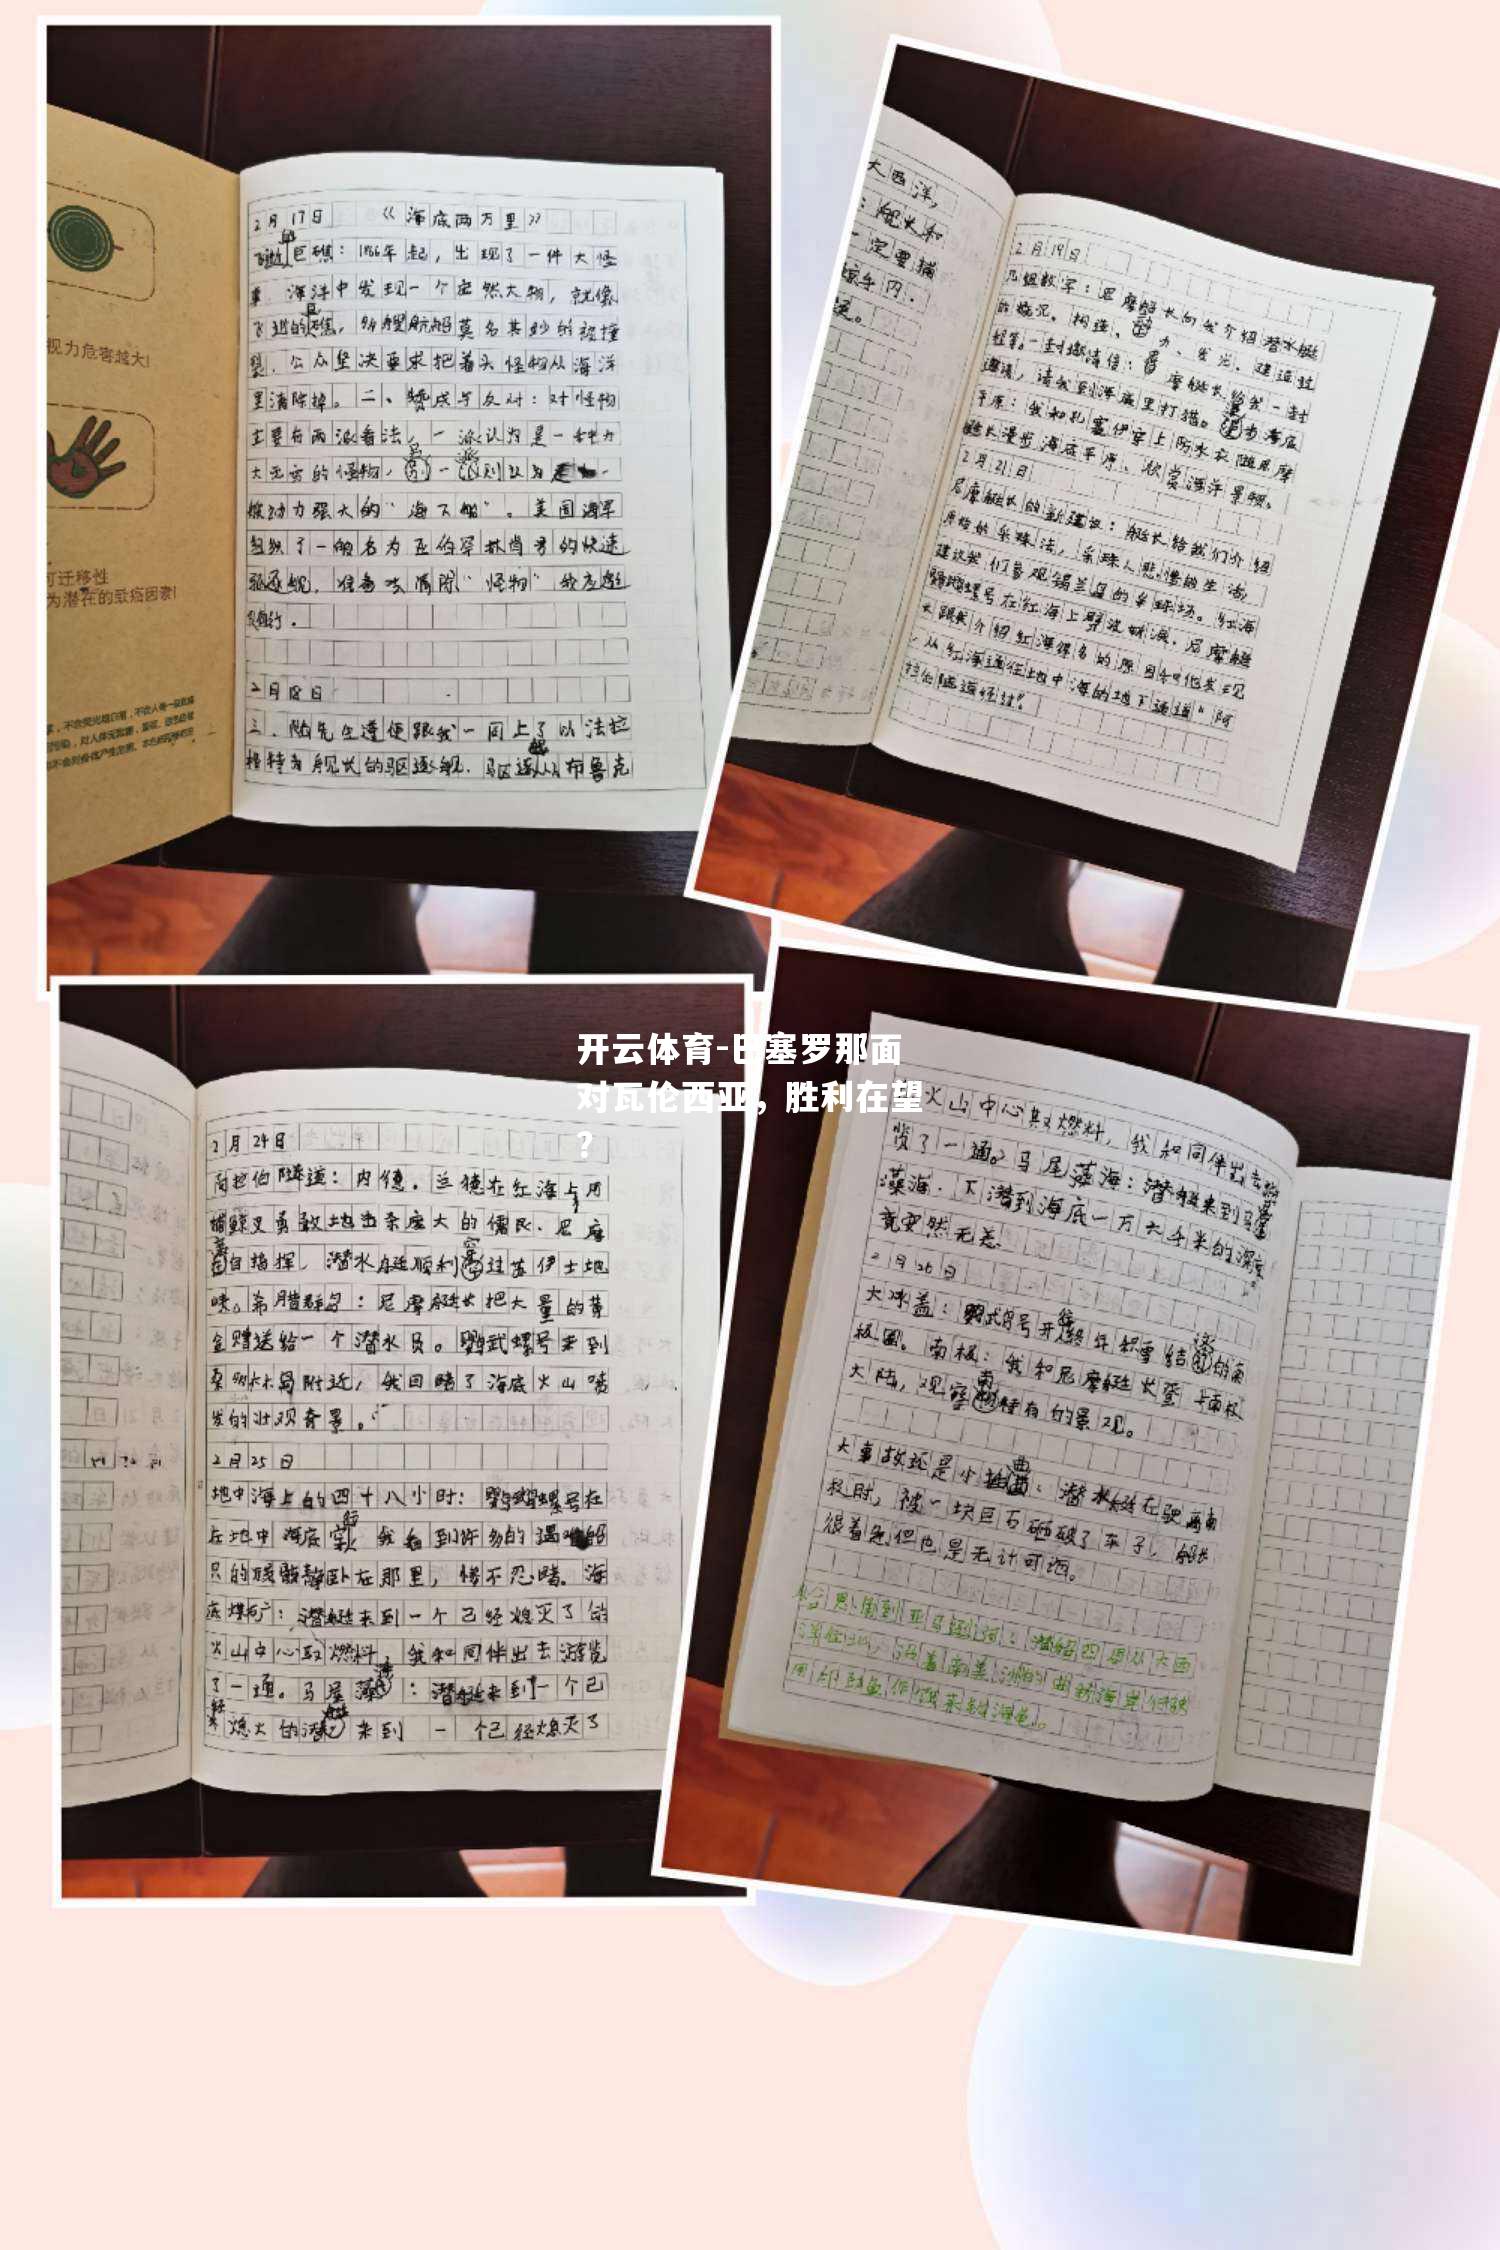 2月17日 《海底两万里》
巨礁：1866年起，出现了一件大怪
事，海洋中发现一个庞然大物，就像
飞逝的礁，多艘航船莫名其妙的被撞
裂，公众坚决要求把着头怪物从海洋
里清除掉。二、赞成与反对：对怪物
主要有两派看法，一派认为是一种力
大无穷的怪物，一派则以为是一
艘动力强大的“海下船”。美国海军
组织了一艘名为亚伯罕林肯号的快速
驱逐舰，准备去清除“怪物”我应邀
随行。
2月18日
三、随先生遵便跟我一同上了以法拉
格特为舰长的驱逐舰，驱逐从布鲁克
视力危害越大!
可迁移性
为潜在的致癌因素!
大西洋，
：舰长和
一定要捕
2月19日
几组数字：尼摩艇长向我介绍潜水艇
的概况，构造、动力、发光、建造过
程等。一封邀请信：尼摩艇长给我一封
邀请，请我到海底里打猎。漫步海底
平原：我和孔塞伊穿上防水衣随尼摩
艇长漫步海底平原、欣赏海洋景观。
2月21日
尼摩艇长的新建议：艇长给我们介绍
原始的采珠法，采珠人悲惨的生活，
建议我们参观锡兰岛的采珠场。红海
鹦鹉螺号在红海上劈波斩浪，尼摩艇
长跟我介绍红海得名的原因和他发现
从红海通往地中海的地下通道“阿
拉伯隧道经过”
开云体育-巴塞罗那面
对瓦伦西亚，胜利在望
?
2月24日
阿拉伯隧道：内德，兰德在红海上用
捕鲸叉勇敢地击杀庞大的儒艮，尼摩
亲自指挥，潜水艇顺利穿过苏伊士地
峡。希腊群岛：尼摩艇长把大量的黄
金赠送给一个潜水员。鹦武螺号来到
桑多林岛附近，我目睹了海底火山喷
发的壮观奇景。
2月25日
地中海上的四十八小时：鹦鹉螺号在
在地中海底穿行，我看到许多的遇难船
只的残骸静卧在那里，惨不忍睹。海
底煤矿：潜艇来到一个已经熄灭了的
火山中心取燃料，我和同伴出去游览
了一通。马尾藻海：潜艇来到一个已
经熄火的潜艇来到一个已经熄灭了
火山中心取燃料，我和同伴出去游
览了一通。马尾藻海：潜艇来到马尾
藻海，下潜到海底一万六千米的深度
竟安然无恙
2月26日
大冰盖：鹦武号开始终年积雪结冰的南
极圈。南极：我和尼摩艇长登上南极
大陆，观察南极特有的景观。
大事故还是小插曲：潜水艇在驶离南
极时，被一块巨石砸破了车子，船长
很着急但也是无计可施。